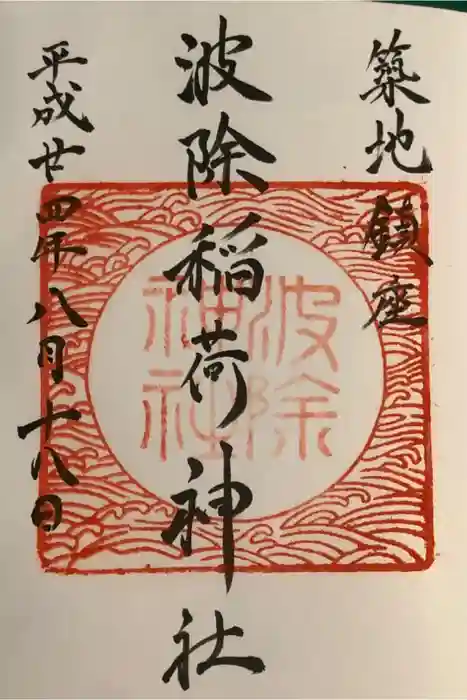 築地鎮座
波除稲荷神社
平成廿四年八月十八日
波除
神社